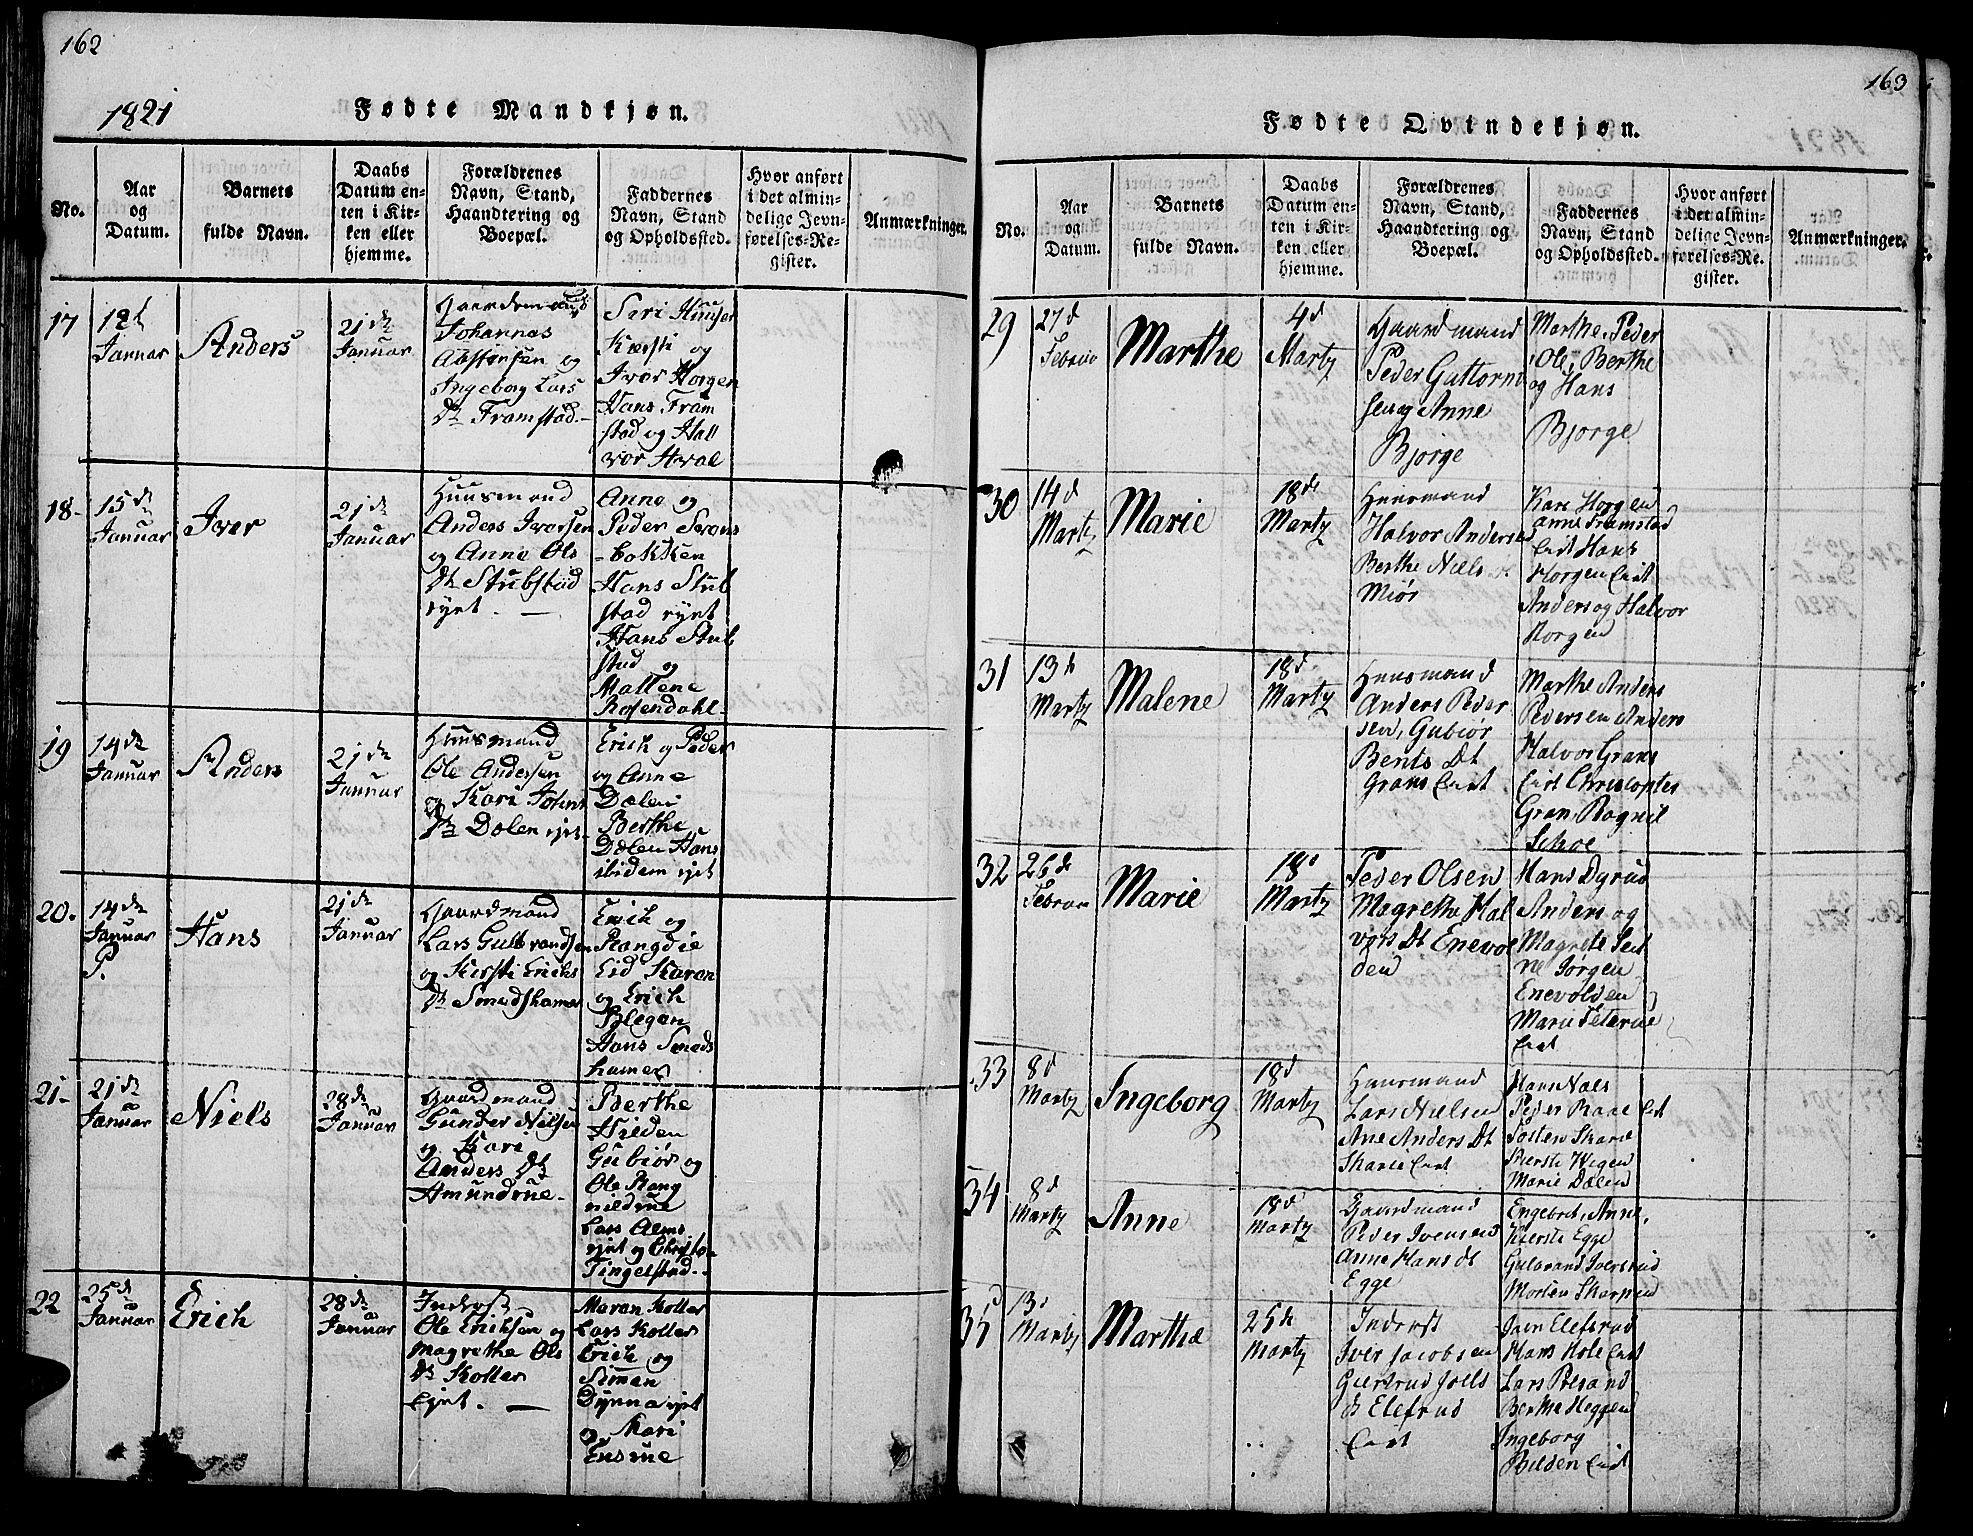 162
1821
Fødte Mandkjøn.
No.
Aar
og
Datum.
Barnets
fulde Navn.
Daabs
Datum en-
ten i Kir-
ken eller
hjemme.
Forældrenes
Navn, Stand,
Haandtering og
Boepæl.
Faddernes
Navn, Stand
og Opholdssted.
Hvor anført
i det almin-
delige Jevn-
førelses-Re-
gister.
Anmærkninger.
17
12t
Januar
Anders
21de
Januar
Gaardmand
Johannes
og
Ingeborg Lars
Dt Framstad.
Siri
Kiersti og
Iver Horgen
Hans Fram
stad og Hall
vor Hval
18-
15de
Januar
Iver
21de
Januar
Huusmand
Anders Iversen
og Anne Ols
Dt Stubstad
ejet.
Anne og
Peder Svens
-bakken
Hans Stub
stad ejet
Hans Stub
stad og
Mallene
Rosendahl
19
14de
Januar
Anders
21de
Januar
Huusmand
Ole Andersen
og Kari Johns
Dt Dælen ejet-
Erich og Peder
og Anne
Dælen
Berthe
Dælen Hans
ibidem ejet
20.
14de
Januar
P.
Hans
21de
Januar
Gaardmand
Lars Gulbrandsen
og Kirsti Erichs
Dt Smedshamer
Erich og
Rangdie
Eid Karen
og Erich
Blegen
Hans Smeds
hamer
21-
21de
Januar
Niels
28de
Januar
Gaardmand
Gunder Nielsen
og Kari
Anders Dt
Amundrue-
Berthe
Hilden
Gubiør og
Ole Rang
nildrue
Lars Alms
ejet og Christo-
Tingelstad.-
22
25de
Januar
Erich
28de
Januar
Inderst
Ole Eriksen og
Magrethe Ols
Dt Koller
Ejet.
Maren Koller
Lars Koller
Erich og
Simen
Dynna ejet
og Mari
Ensrue
163
Fødte Qvindekjøn.
No.
Aar
og
Datum.
Barnets
fulde Navn.
Daabs
Datum en-
ten i Kir-
ken eller
hjemme.
Forældrenes
Navn, Stand,
Haandtering og
Boepæl.
Faddernes
Navn, Stand
og Opholdssted.
Hvor anført
i det almin-
delige Jevn-
førelses-Re-
gister.
Anmærkninger.
29
27d
Februar
Marthe
4d
Marty
Gaardmand
Peder Guttorm
sen og Anne
Bjørge
Marthe, Peder
Ole, Berthe
og Hans
Bjørge
30
14d
Marty
Marie
18de
Marty
Huusmand
Halvor Andersen
Berthe Niels
Miør
Kari Horgen
Anne Framstad
Eiet Hans
Horgen Eiet
Anders og Halvor
Horgen
31
13de
Marty
Malene
18d
Marty
Huusmand
Anders Peder
sen, Gubiør
Bents Dt
Grans Eiet
Marthe Anders
Pedersen Anders
Halvor Grans
Eiet Christopher
Gran Rognil
Schoe
32
26de
Februar
Marie
18d
Marty
Peder Olsen
Magrethe Hal
vors Dt Enevol
den
Hans Dyrud
Anders og
Magrete Seit
ne Jørgen
Enevolden
Marie Peterue
Eiet
33
8d
Marty
Ingeborg
18d
Marty
Huusmand
Lars Nielsen
Ane Anders Dt
Skarie Eiet
Hans Næs
Peder Raae Eiet
Tosten Skarie
Kierste Wigen
Marie Dælen
34
8d
Marty
Anne
18d
Marty
Gaardmand
Peder Ivensen
Anne Hans dt
Egge
Engebret, Anne,
Kierste Egge
Gulbrand Iverstud
Morten Skarpud
35
13d
Marty
Marthæ
25de
Marty
Inderst
Iver Jacobsen
Giertrud Joells
dt Elefsrud
Eiet
Elefsrud
Hans Hole Eiet
Lars Presand
Berthe Heggen
Ingeborg
Bilden Eiet